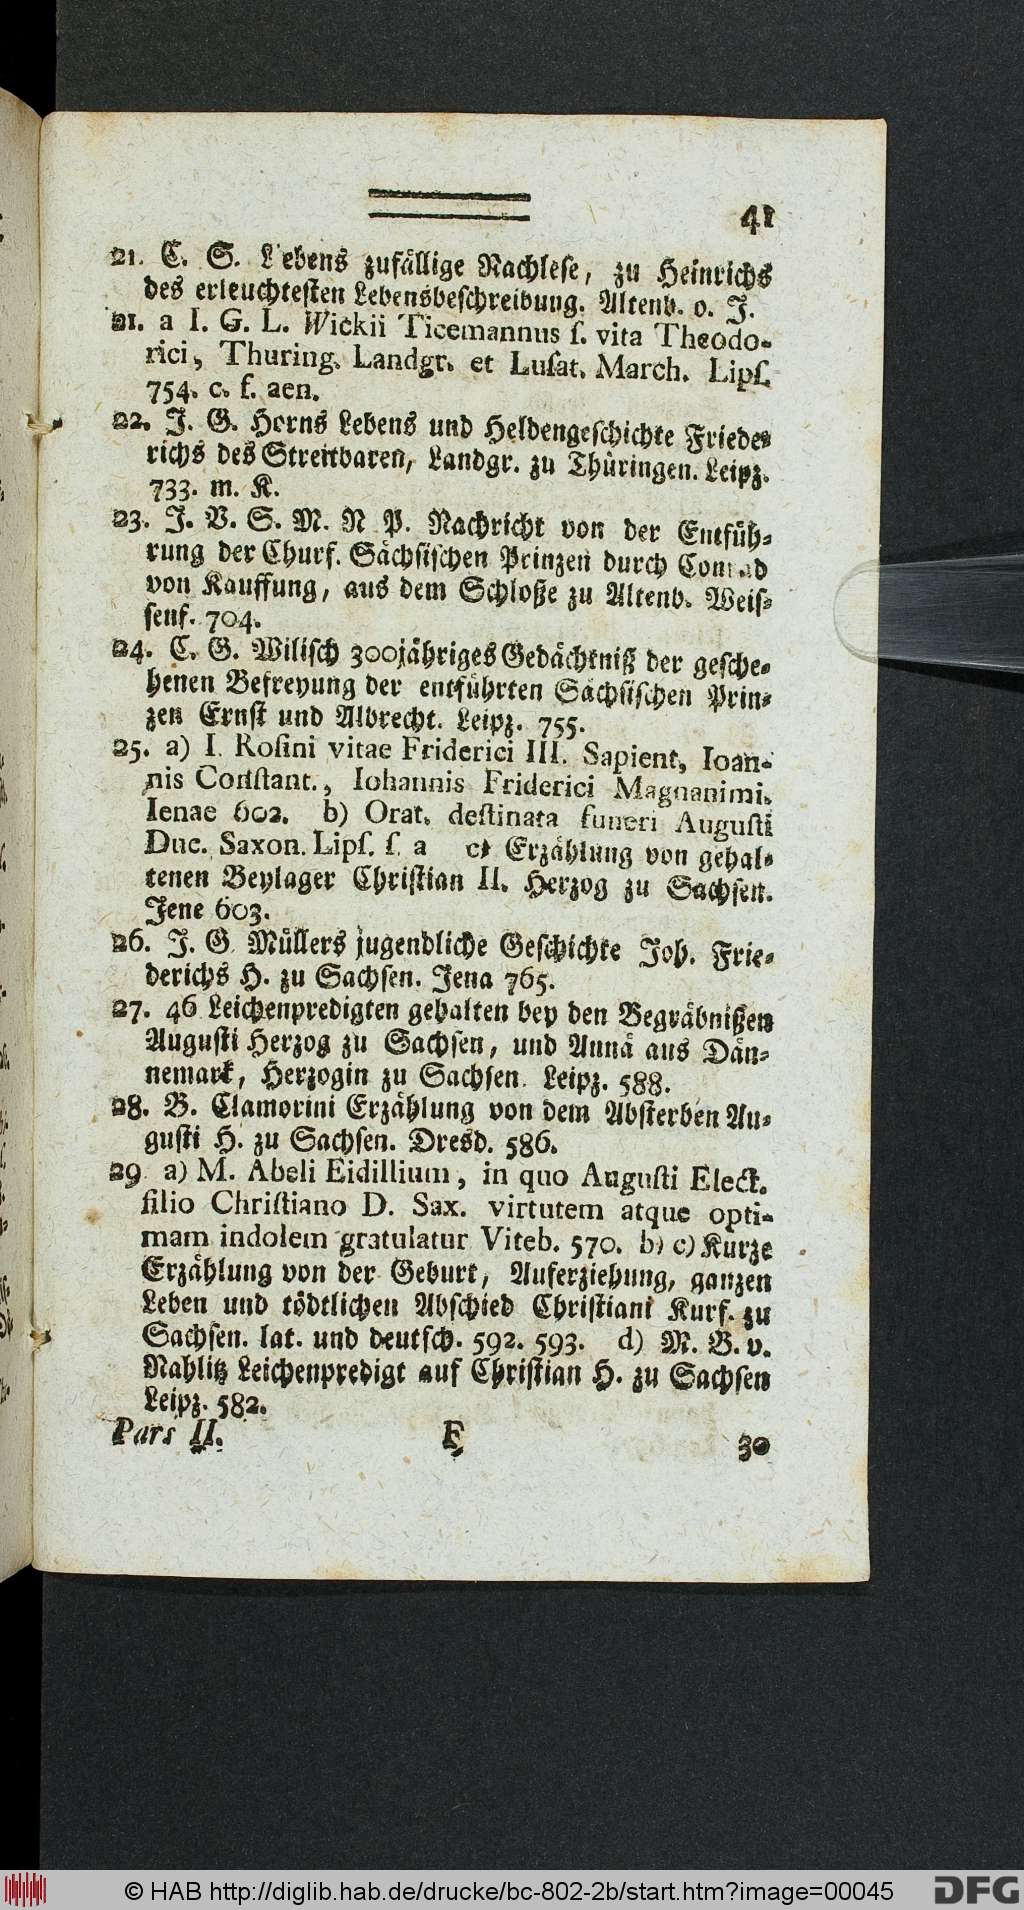 41
21. C. S. Lebens zufällige Nachlese, zu Heinrichs
des erleuchtesten Lebensbeschreibung. Altenb. o. J.
21. a I. G. L. Wickii Ticemannus ſ. vita Theodo-
rici, Thuring. Landgr. et Luſat. March. Lipſ.
754. c. f. aen.
22. J. G. Horns Lebens und Heldengeschichte Friede-
richs des Streitbaren, Landgr. zu Thüringen. Leipz.
733. m. K.
23. J. V. S. M. N P. Nachricht von der Entfüh-
rung der Churf. Sächsischen Prinzen durch Conrad
von Kauffung, aus dem Schloße zu Altenb. Weis-
senf. 704.
24. C. G. Wilisch 300jähriges Gedächtniß der gesche-
henen Befreyung der entführten Sächsischen Prin-
zen Ernst und Albrecht. Leipz. 755.
25. a) I. Roſini vitae Friderici III. Sapient, Ioan-
nis Conſtant., Iohannis Friderici Magnanimi.
Ienae 602. b) Orat. deſtinata funeri Auguſti
Duc. Saxon. Lipſ. ſ. a c) Erzählung von gehal-
tenen Beylager Christian II. Herzog zu Sachsen.
Jene 603.
26. J. G Müllers jugendliche Geschichte Joh. Frie-
derichs H. zu Sachsen. Jena 765.
27. 46 Leichenpredigten gehalten bey den Begräbnißen
Augusti Herzog zu Sachsen, und Annä aus Dän-
nemark, Herzogin zu Sachsen. Leipz. 588.
28. B. Clamorini Erzählung von dem Absterben Au-
gusti H. zu Sachsen. Dresd. 586.
29 a) M. Abeli Eidillium, in quo Auguſti Elect.
filio Chriſtiano D. Sax. virtutem atque opti-
mam indolem gratulatur Viteb. 570. b) c) Kurze
Erzählung von der Geburt, Auferziehung, ganzen
Leben und tödtlichen Abschied Christiani Kurf. zu
Sachsen. lat. und deutsch. 592. 593. d) M. B. v.
Nahlitz Leichenpredigt auf Christian H. zu Sachsen
Leipz. 582.
Pars II. F 30
© HAB http://diglib.hab.de/drucke/bc-802-2b/start.htm?image=00045
DFG